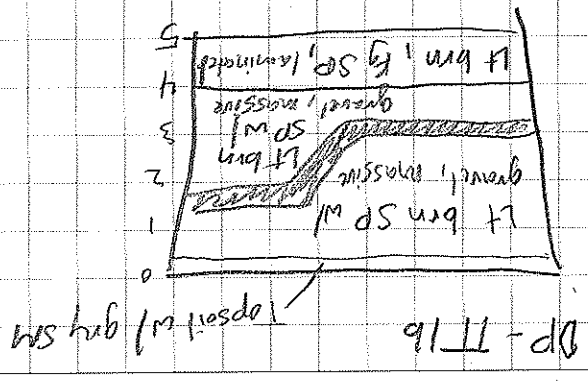 DP - TT1b
Topsoil w/ gry SM
0
1
Lt brn SP w/
gravel, massive
2
Lt brn
SP w/
gravel, massive
3
4
Lt brn, fg SP, laminated
5